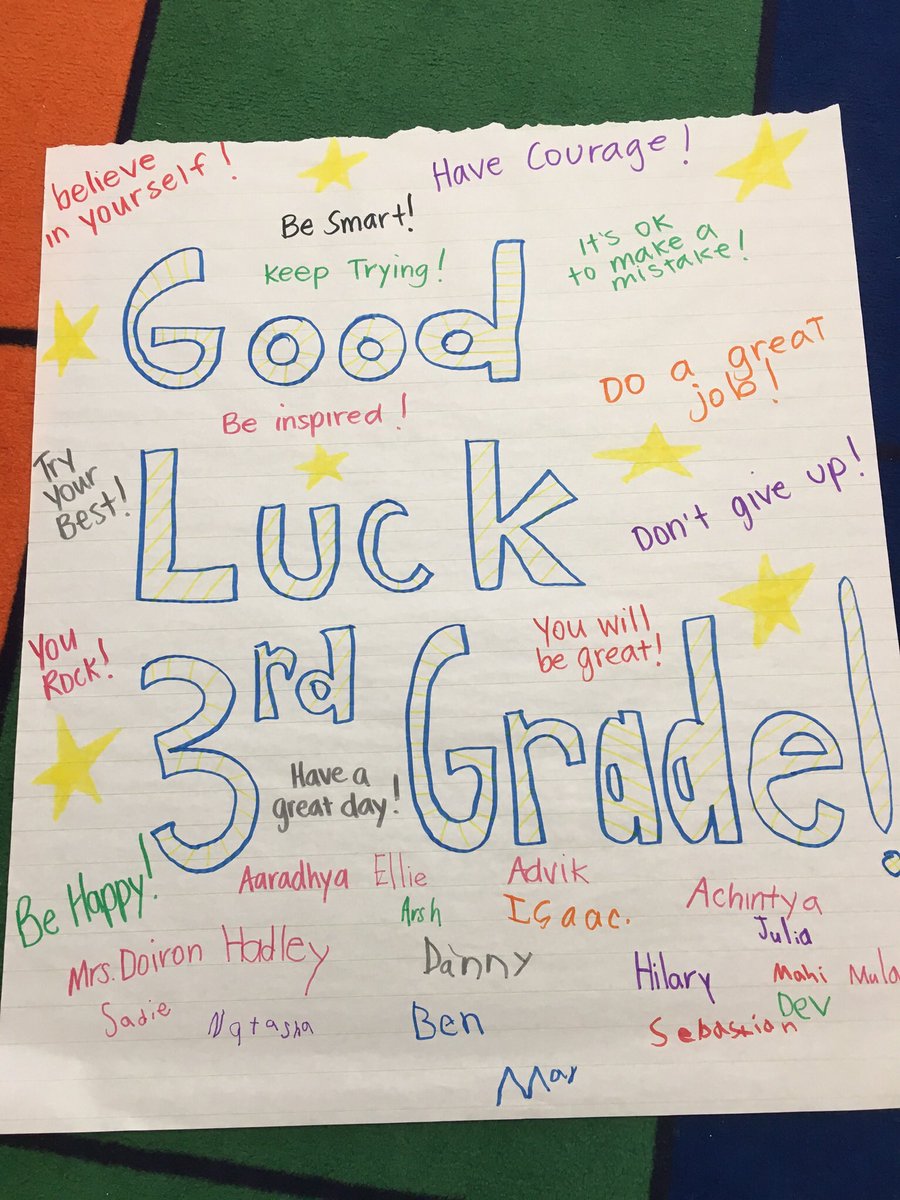 believe
in yourself!
Have Courage!
Be Smart!
Keep Trying!
It's OK
to make a
mistake!
Good
Do a great
job!
Be inspired!
Try
Your
Best!
Luck
Don't give up!
You
Rock!
You will
be great!
3rd Grade!
Have a
great day!
Be Happy!
Aaradhya Ellie Advik
Arsh Isaac. Achintya
Julia
Mrs. Doiron Hadley Danny Hilary Mahi
Sadie Natasha Ben Dev
Sebastion